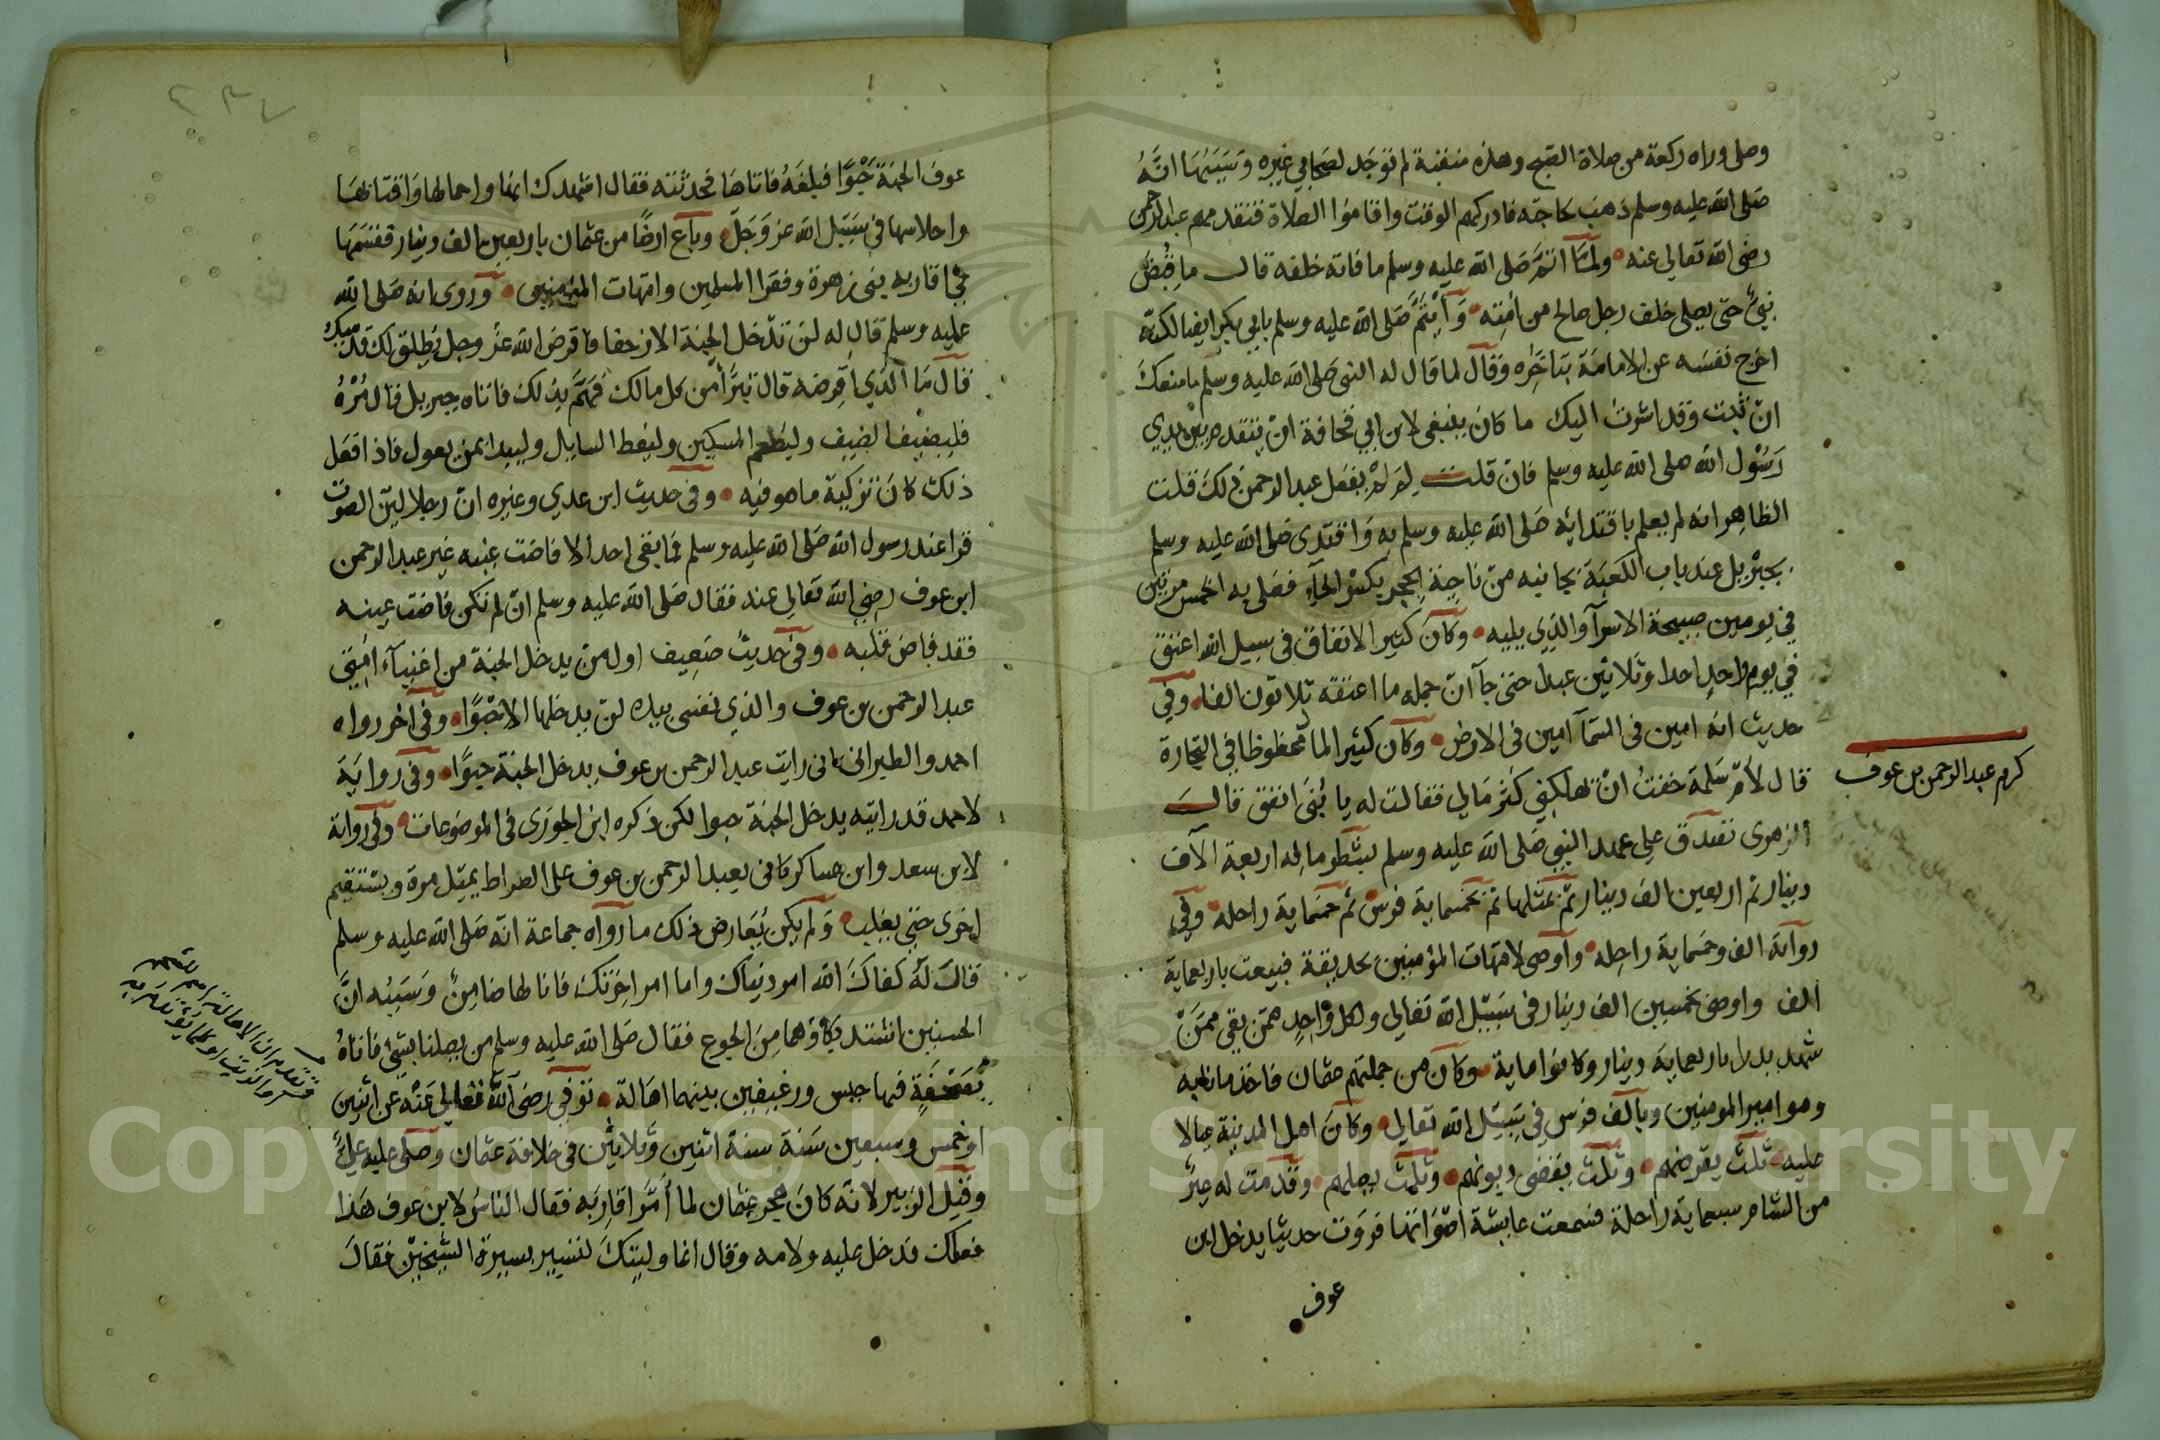 وصلى وراه ركعة من صلاة الصبح وهذه منقبة لم توجد لصحابي غيره وسببها انه
صلى الله عليه وسلم ذهب لحاجته فادركهم الوقت واقاموا الصلاة فتقدمهم عبد الرحمن
رضى الله تعالى عنه ولما اتم صلى الله عليه وسلم ما فاته خلفه قال ما قبض
نبي حتى يصلى خلف رجل صالح من امته وأيتم صلى الله عليه وسلم بابي بكر ايضا لكنه
اخرج نفسه عن الامامة بتاخره وقال لما قال له النبى صلى الله عليه وسلم ما منعك
ان تثبت وقد اشرت اليك ما كان ينبغى لابن ابي قحافة ان يتقدم بين يدي
رسول الله صلى الله عليه وسلم فان قلت لم لم يفعل عبد الرحمن ذلك قلت
الظاهر انه لم يعلم باقتدائه صلى الله عليه وسلم به واقتدى صلى الله عليه وسلم
بجبريل عند باب الكعبة بجانبه من ناحية الحجر بكسر الحاء فصلى به الخمس مرتين
في يومين صبيحة الاسرآ والذي يليه وكان كثير الانفاق في سبيل الله اعتق
في يوم واحد احدا وثلاثين عبدا حتى جآ ان جملة ما اعتقه ثلاثون الفا وفي
حديث انه امين في السمآ امين في الارض وكان كثير المال محظوظا في التجارة
قال لأم سلمة خفت ان تهلكني كثر مالي فقالت له يا بنى انفق قال
الزهرى تصدق على عهد النبي صلى الله عليه وسلم بشطر ماله اربعة الآف
دينار ثم اربعين الف دينار ثم بمثلها ثم بخمسماية فرس ثم خمسماية راحلة وفي
رواية الف وخمسماية راحله وأوصى لامهات المؤمنين بحديقة فبيعت باربعماية
الف واوصى بخمسين الف دينار فى سبيل الله تعالي ولكل واحد ممن بقي ممن
شهد بدرا باربعماية دينار وكانوا ماية وكان من جملتهم عثمان فاخذ مانابه
وهو امير المومنين وبالف فرس في سبيل الله تعالى وكان اهل المدينة عيالا
عليه ثلث يقرضهم وثلث يقضى ديونهم وثلث يصلهم وقدمت له عير
من الشام سبعماية راحلة فسمعت عايشة اصواتها فروت حديثا يدخل ابن
عوف
كرم عبد الرحمن بن عوف
٢٣٧
عوف الجنة حبوا فبلغه فاتاها فحدثته فقال اشهدك انها واحمالها واقتابها
واحلاسها في سبيل الله عز وجل وباع ارضا من عثمان باربعين الف دينار فقسمها
في اقاربه بني زهرة وفقرا المسلمين وامهات المؤمنين وروى انه صلى الله
عليه وسلم قال له لن تدخل الجنة الا زحفا فاقرض الله عز وجل يطلق لك قدميك
قال ما الذي اقرضه قال تبرأ من كل مالك فهم بذلك فاتاه جبريل فقال مره
فليضيف الضيف وليطعم المسكين وليعط السايل وليبدأ بمن يعول فاذا فعل
ذلك كان تزكية ما هو فيه وفى حديث ابن عدي وغيره ان رجلا لين الصوت
قرا عند رسول الله صلى الله عليه وسلم فما بقى احد الا فاضت عينه غير عبد الرحمن
ابن عوف رضي الله تعالى عنه فقال صلى الله عليه وسلم ان لم تكن فاضت عينه
فقد فاض قلبه وفى حديث ضعيف اول من يدخل الجنة من اغنيآء امتي
عبد الرحمن بن عوف والذي نفسى بيده لن يدخلها الا حبوا وفى اخر رواه
احمد والطبرانى انى رايت عبد الرحمن بن عوف يدخل الجنة حبوا وفى رواية
لاحمد قد رايته يدخل الجنة حبوا لكن ذكره ابن الجوزى فى الموضوعات وفى رواية
لابن سعد وابن عساكر كانى بعبد الرحمن بن عوف على الصراط يميل مرة ويستقيم
اخرى حتى يفلت ولم يكن يعارض ذلك ما رواه جماعة انه صلى الله عليه وسلم
قال له كفاك الله امر دنياك واما امر اخرتك فانا لها ضامن وسببه ان
الحسنين اشتد بكاؤهما من الجوع فقال صلى الله عليه وسلم من يصلنا بشئ فاتاه
بصحفة فيها حيس ورغيفين بينهما اهالة توفي رضى الله تعالى عنه عن اثنين
او خمس وسبعين سنة سنة اثنين وثلاثين في خلافة عثمان وصلى عليه علي
وقيل الزبير لانه كان هجر عثمان لما أمر اقاربه فقال الناس لابن عوف هذا
فعلك فدخل عليه ولامه وقال انما وليتك لتسير بسيرة الشيخين فقال